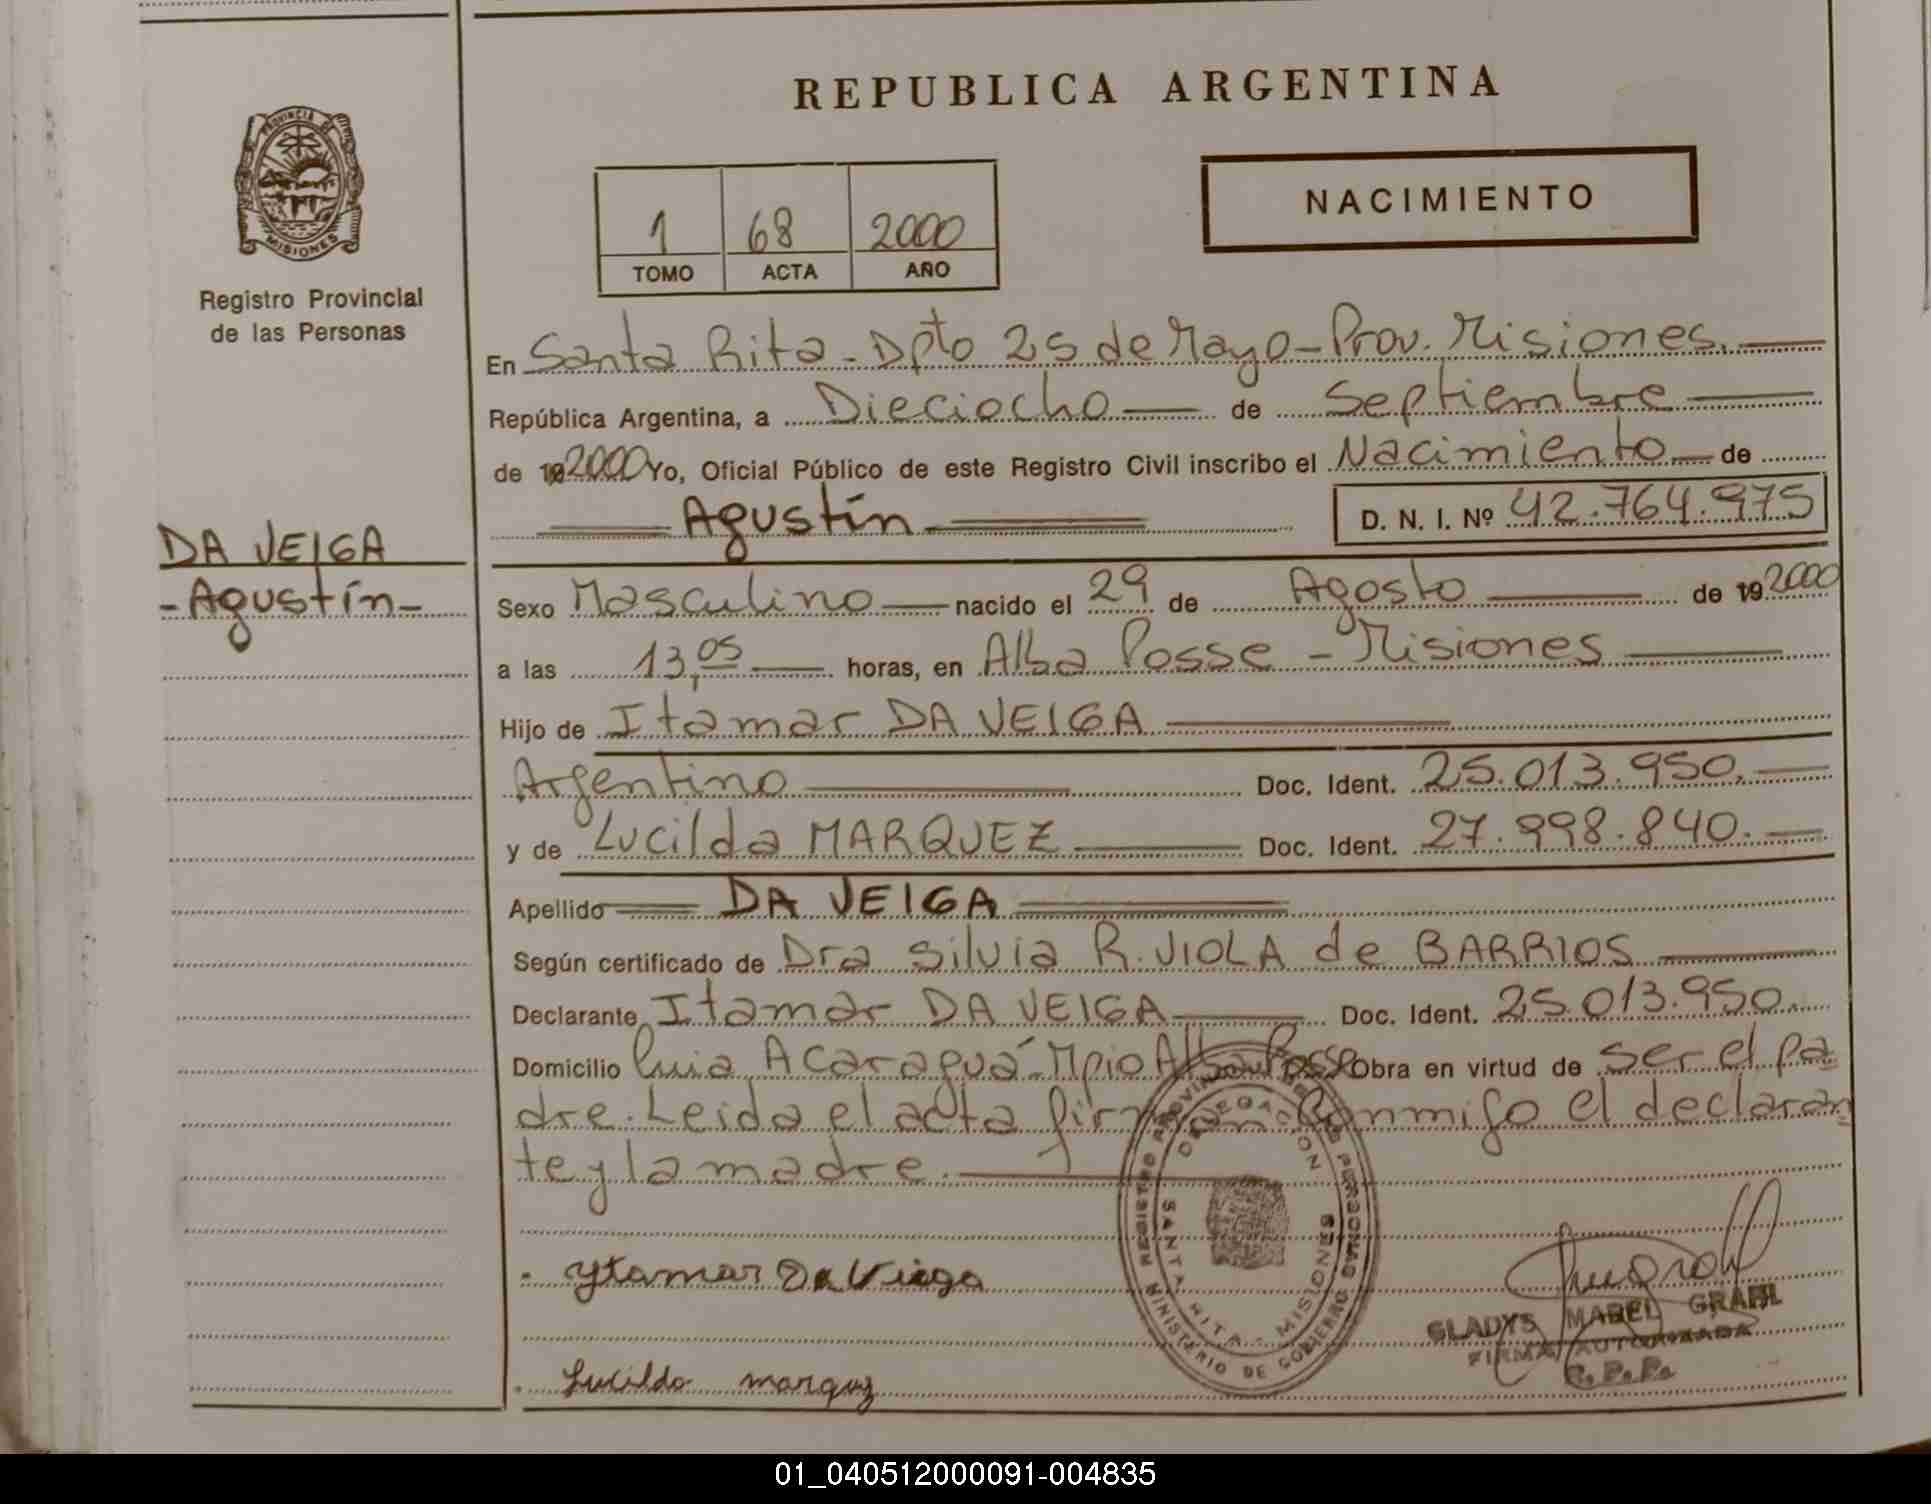 REPUBLICA ARGENTINA
PROVINCIA DE
MISIONES
Registro Provincial
de las Personas
1 68 2000
TOMO ACTA AÑO
NACIMIENTO
En Santa Rita - Dpto 25 de Mayo - Prov. Misiones.
República Argentina, a Dieciocho de Septiembre
de 19 2000 Yo, Oficial Público de este Registro Civil inscribo el Nacimiento de
Agustín D. N. I. Nº 42.764.975
DA VEIGA
- Agustín -
Sexo Masculino nacido el 29 de Agosto de 19 2000
a las 13,05 horas, en Alba Posse - Misiones
Hijo de Itamar DA VEIGA
Argentino Doc. Ident. 25.013.950.
y de Lucilda MARQUEZ Doc. Ident. 27.998.840.
Apellido DA VEIGA
Según certificado de Dra Silvia R. VIOLA de BARRIOS
Declarante Itamar DA VEIGA Doc. Ident. 25.013.950.
Domicilio Acaraguá - Mpio Alba Posse Obra en virtud de ser el pa
dre. Leida el acta firman conmigo el declaran
te y la madre.
Ytamar Da Veiga
Lucilda marquez
REGISTRO PROVINCIAL DE LAS PERSONAS
MINISTERIO DE GOBIERNO
DELEGACION
SANTA RITA - MISIONES
GLADYS MABEL GRAHL
FIRMA AUTORIZADA
R. P. P.
01_040512000091-004835